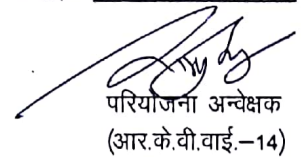 परियोजना अन्वेक्षक
(आर.के.वी.वाई.–14)